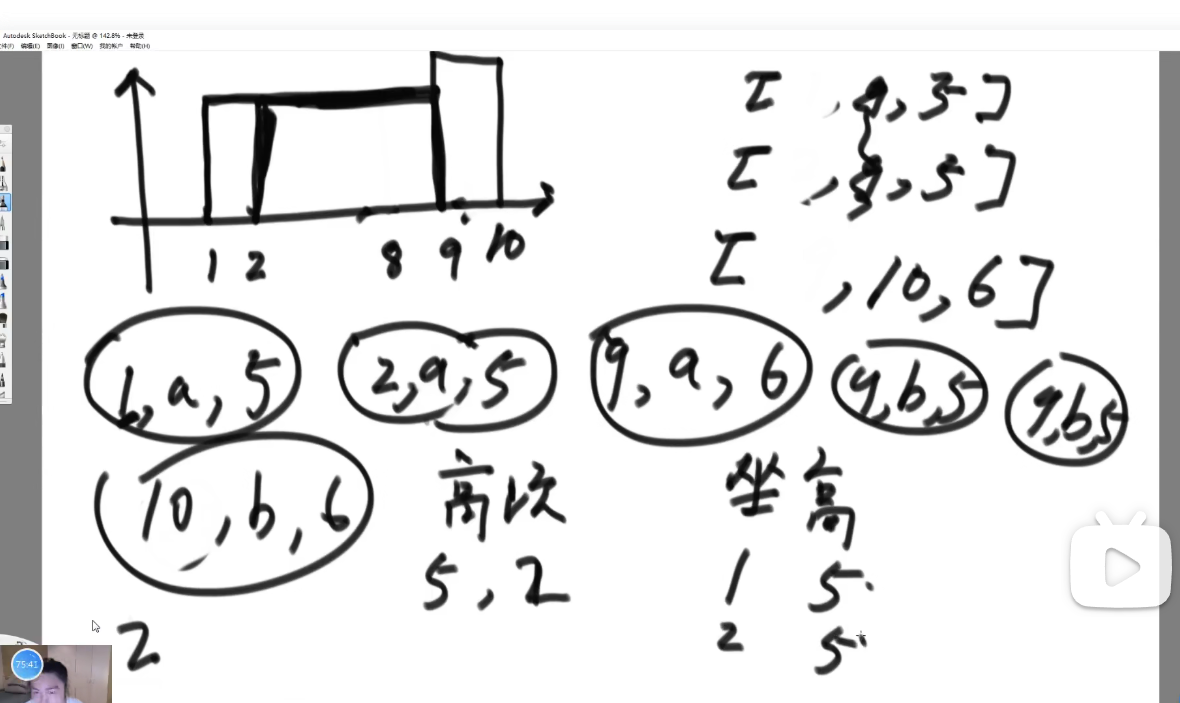 Autodesk SketchBook - 无标题 @ 142.8% - 未登录
文件(F) 编辑(E) 图像(I) 窗口(W) 我的帐户 帮助(H)
[ , 9, 5]
[ , 9, 5]
[ , 10, 6]
1 2 8 9 10
1, a, 5 2, a, 5 9, a, 6 9, b, 5 9, b, 5
10, b, 6 高 次 坐 高
5, 2 1 5
2 2 5
75:41